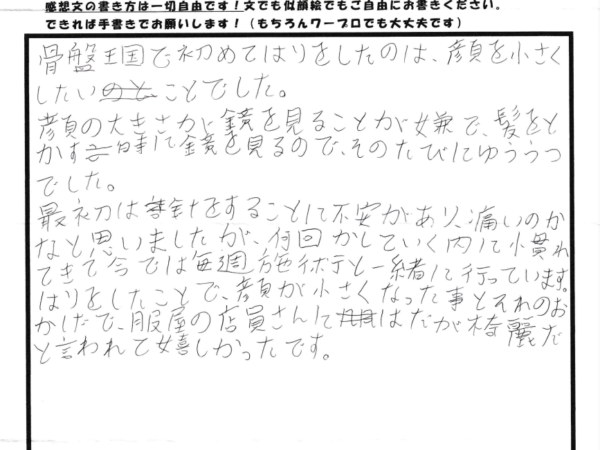 感想文の書き方は一切自由です！文でも似顔絵でもご自由にお書きください。
できれば手書きでお願いします！（もちろんワープロでも大丈夫です）
骨盤王国で初めてはりをしたのは、顔を小さく
したいのとことでした。
顔の大きさが鏡を見ることが嫌で、髪をと
かす時に鏡を見るので、そのたびにゆううつ
でした。
最初は針をすることに不安があり、痛いのか
なと思いましたが、何回かしていく内に慣れ
てきて今では毎週施術と一緒に行っています。
はりをしたことで、顔が小さくなった事とそれのお
かげで、服屋の店員さんにはだが綺麗だ
と言われて嬉しかったです。